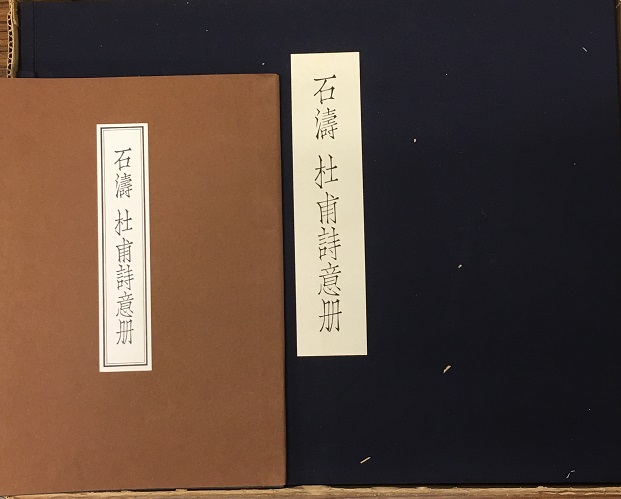 石濤 杜甫詩意册
石濤 杜甫詩意册